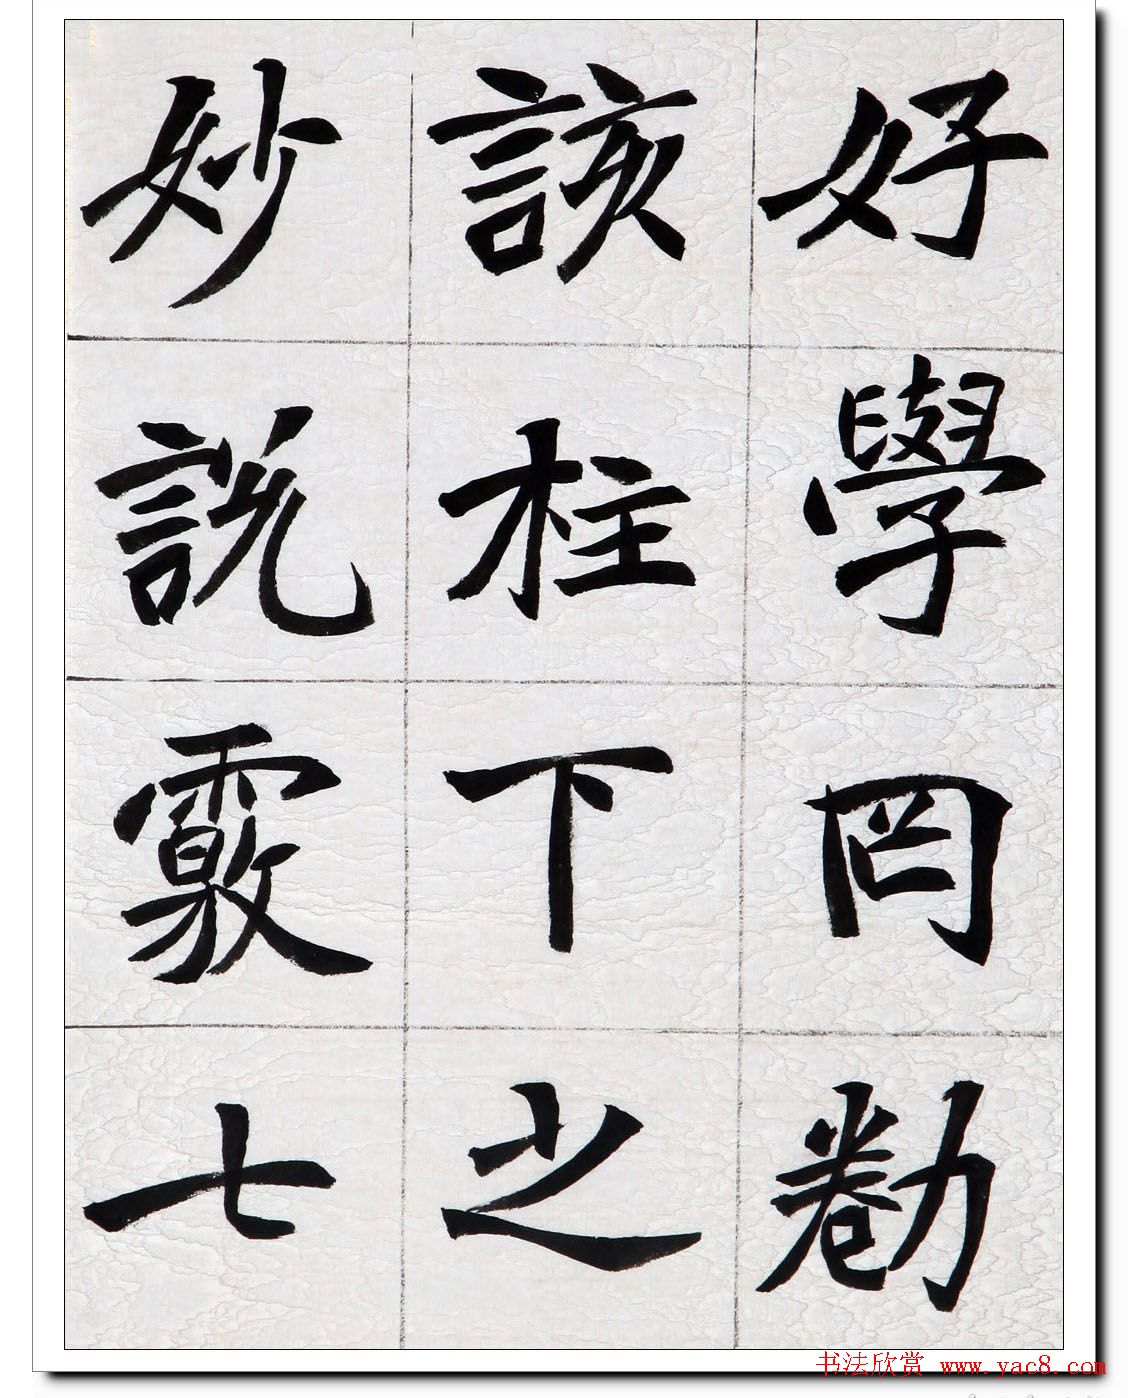 好學罔勌
該柱下之
妙說覈七
书法欣赏 www.yac8.com